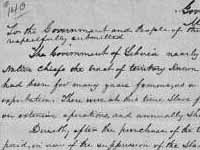 940
Gov
M
To the Government and People of the
respectfully submitted
The Government of Liberia nearly
Native chiefs the tract of territory known
had been for many years famous as a
exportation. There was at this time Slave f
on extensive operations, and annually Sh
Directly after the purchase of the t
paid, in view of the suppression of the Sla